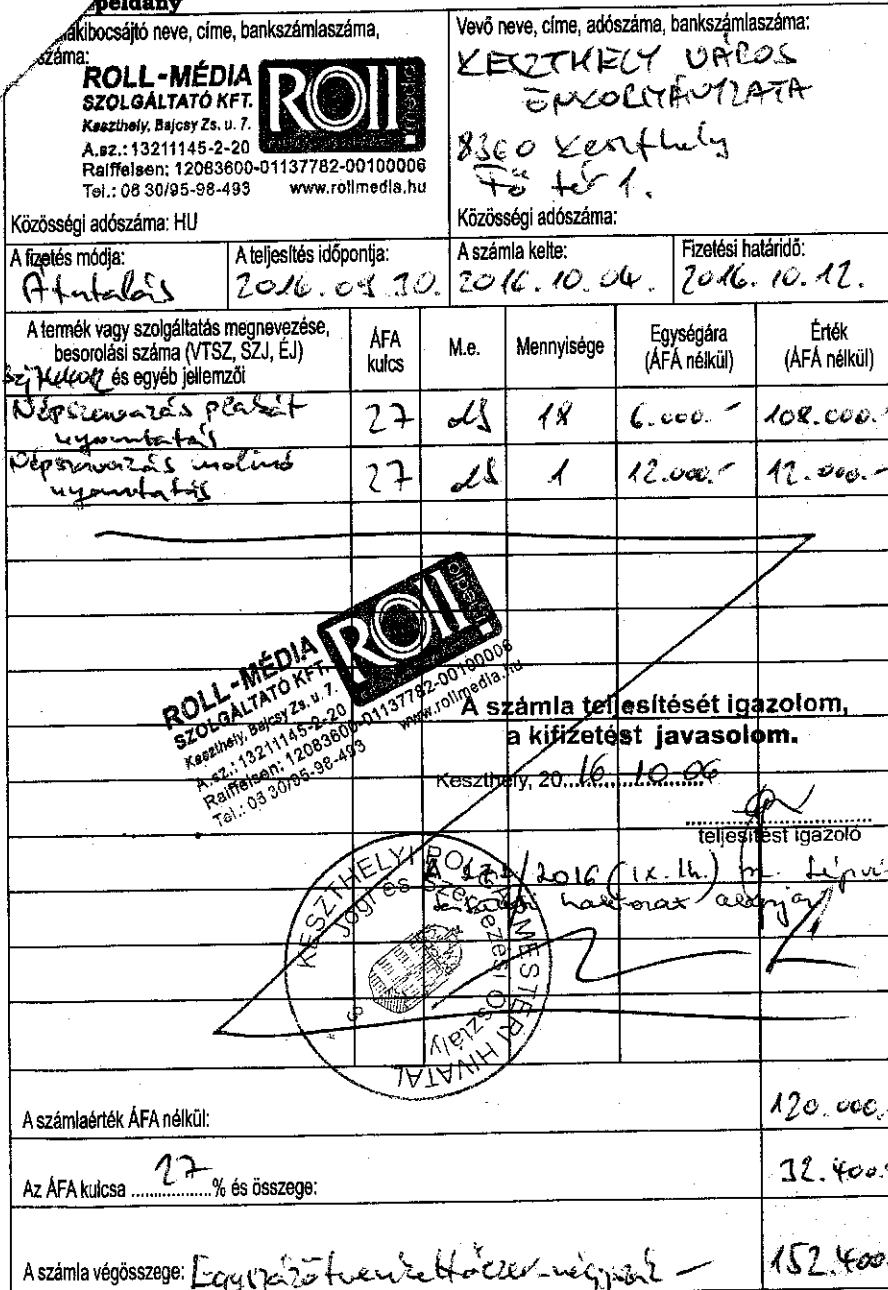 példány
neve, címe, bankszámlaszáma,
száma:
ROLL-MÉDIA
SZOLGÁLTATÓ KFT.
Keszthely, Bajcsy Zs. u. 7.
A.sz.: 13211145-2-20
Raiffeisen: 12083600-01137782-00100006
Tel.: 06 30/95-98-493 www.rollmedia.hu
ROLL
média
Közösségi adószáma: HU
Vevő neve, címe, adószáma, bankszámlaszáma:
KESZTHELY VÁROS
ÖNKORMÁNYZATA
8360 Keszthely
Fő tér 1.
Közösségi adószáma:
A fizetés módja:
Átutalás
A teljesítés időpontja:
2016.09.30.
A számla kelte:
2016.10.04.
Fizetési határidő:
2016.10.12.
A termék vagy szolgáltatás megnevezése,
besorolási száma (VTSZ, SZJ, ÉJ)
és egyéb jellemzői
ÁFA
kulcs
M.e.
Mennyisége
Egységára
(ÁFA nélkül)
Érték
(ÁFA nélkül)
Népszavazás plakát
nyomtatás
27 db 18 6.000.- 108.000.-
Népszavazás molinó
nyomtatás
27 db 1 12.000.- 12.000.-
ROLL
média
ROLL-MÉDIA
SZOLGÁLTATÓ KFT.
Keszthely, Bajcsy Zs. u. 7.
A.sz.: 13211145-2-20
Raiffeisen: 12083600-01137782-00100006
Tel.: 06 30/95-98-493 www.rollmedia.hu
A számla teljesítését igazolom,
a kifizetést javasolom.
Keszthely, 20.16.10.06
teljesítést igazoló
/2016 (IX.
alapján
KESZTHELYI POLGÁRMESTERI HIVATAL
Jogi és Szervezési Osztály
A számlaérték ÁFA nélkül: 120.000.
Az ÁFA kulcsa 27 % és összege: 32.400.
A számla végösszege: Egyszázötvenkettőezer-négyszáz - 152.400.